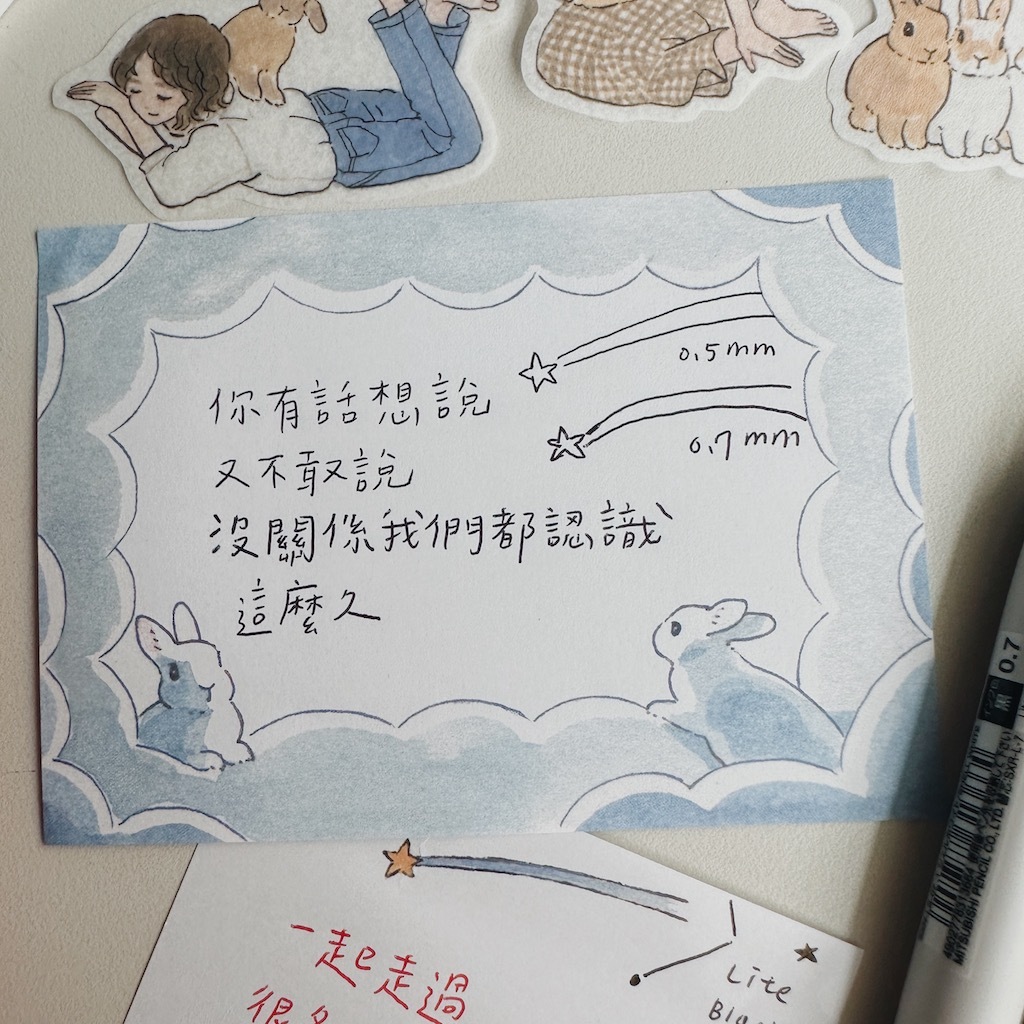 0.5mm
0.7mm
你有話想說
又不敢說
沒關係我們都認識
這麼久
一起走過
很多
Lite
0.7
黒
SXR-L-7
MITSUBISHI PENCIL CO.,LTD.